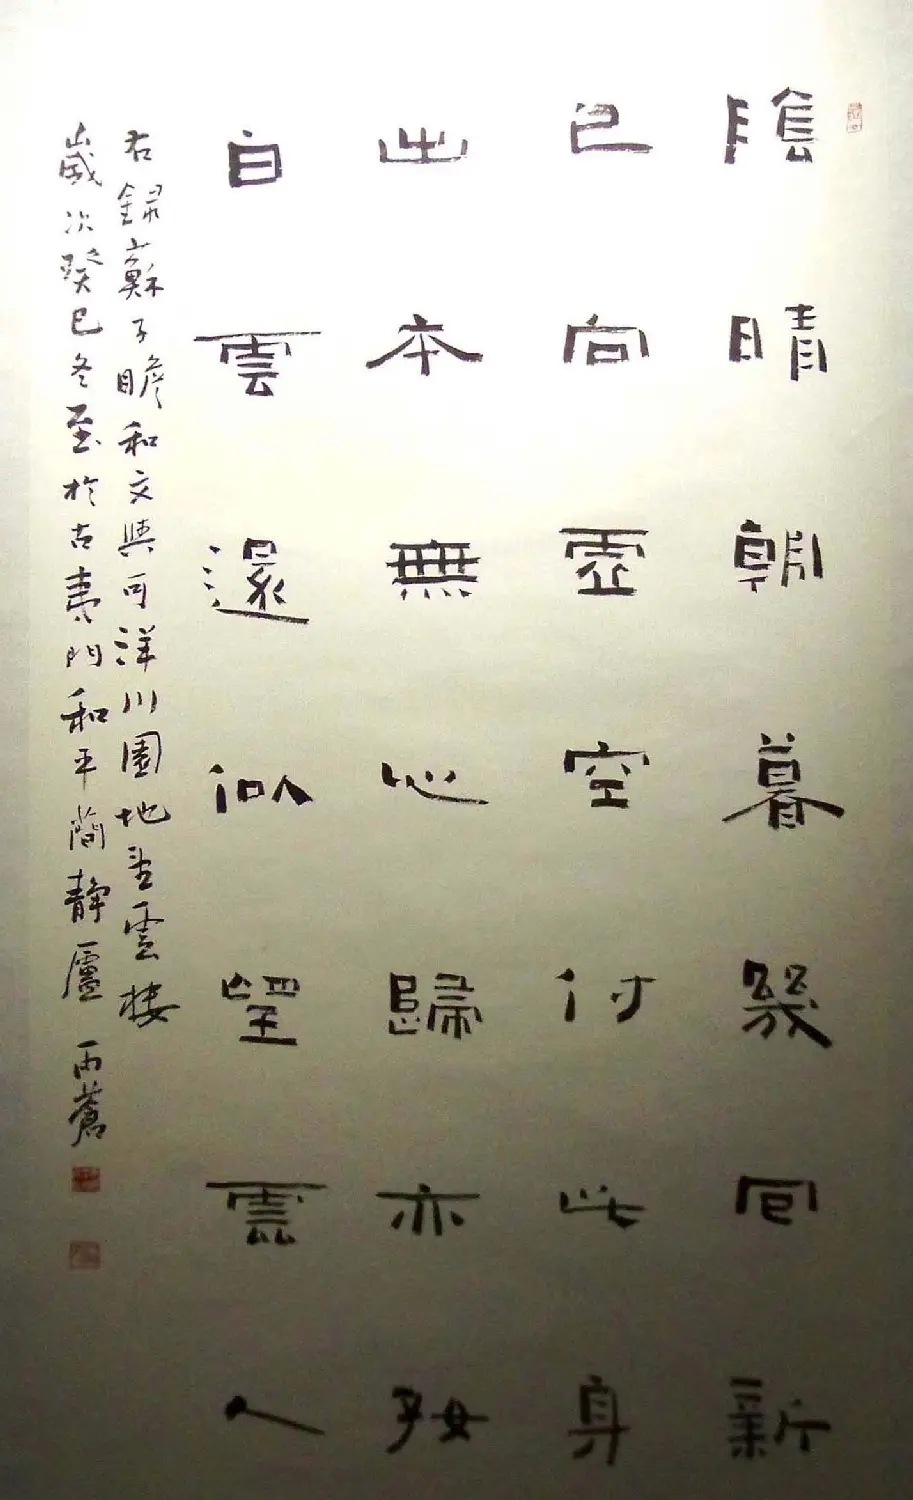 陰晴朝暮幾回新
已向虛空付此身
出本無心歸亦好
白雲還似望雲人
右録蘇子瞻和文與可洋川園地望雲楼
歲次癸巳冬至於古夷門和平蕳静廬 雨蒼